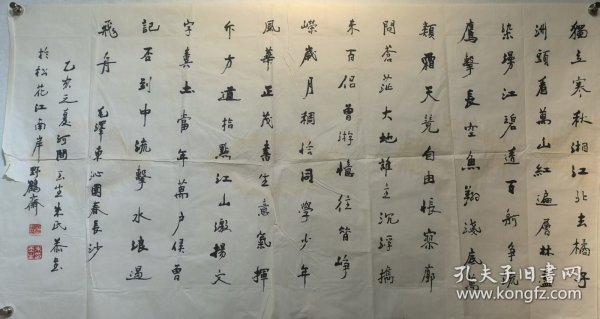 獨立寒秋湘江北去橘子
洲頭看萬山紅遍層林盡
染漫江碧透百舸爭流
鷹擊長空魚翔淺底萬
類霜天競自由悵寥廓
問蒼茫大地誰主沉浮攜
來百侶曾游憶往昔崢
嶸歲月稠恰同學少年
風華正茂書生意氣揮
斥方遒指點江山激揚文
字糞土當年萬戶侯曾
記否到中流擊水浪遏
飛舟 毛澤東沁園春長沙
乙亥之夏河間 生朱氏恭 
於松花江南岸野鶴齋
孔夫子旧书网
www.kongfz.com